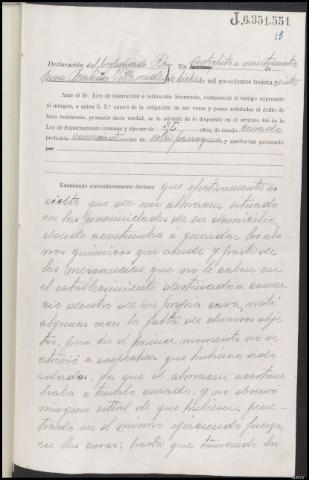 J.6.351.551
13
Declaración del perjudicado
En
de mil novecientos treinta y
Ante el Sr. Juez de instrucción e infrascrito Secretario, compareció el testigo expresado
al margen, a quien S. S.ª enteró de la obligación de ser veraz y penas señaladas al reo de
falso testimonio, prometió decir verdad, se le advirtió de lo dispuesto en el artículo 446 de la
Ley de Enjuiciamiento criminal y dijo ser de años, de estado casado
profesión comerciante vecino de esta parroquia y que fué procesado
por
Examinado convenientemente declara: que efectivamente es
cierto que de un almacen situado
en las proximidades de su domicilio,
donde acostumbra á guardar los abo-
nos quimicos que vende y parte de
las mercancias que no le caben en
el establecimiento destinado a comer-
cio dentro de su propia casa, notó
algunas veces la falta de diversos obje-
tos, pero en el primer momento no se
atrevió a sospechar que hubieran sido
robados, ya que el almacen acostum-
braba a tenerlo cerrado, y no observó
ninguna señal de que hubiesen pene-
trado en el mismo ejerciendo fuerza
en las cosas: hasta que